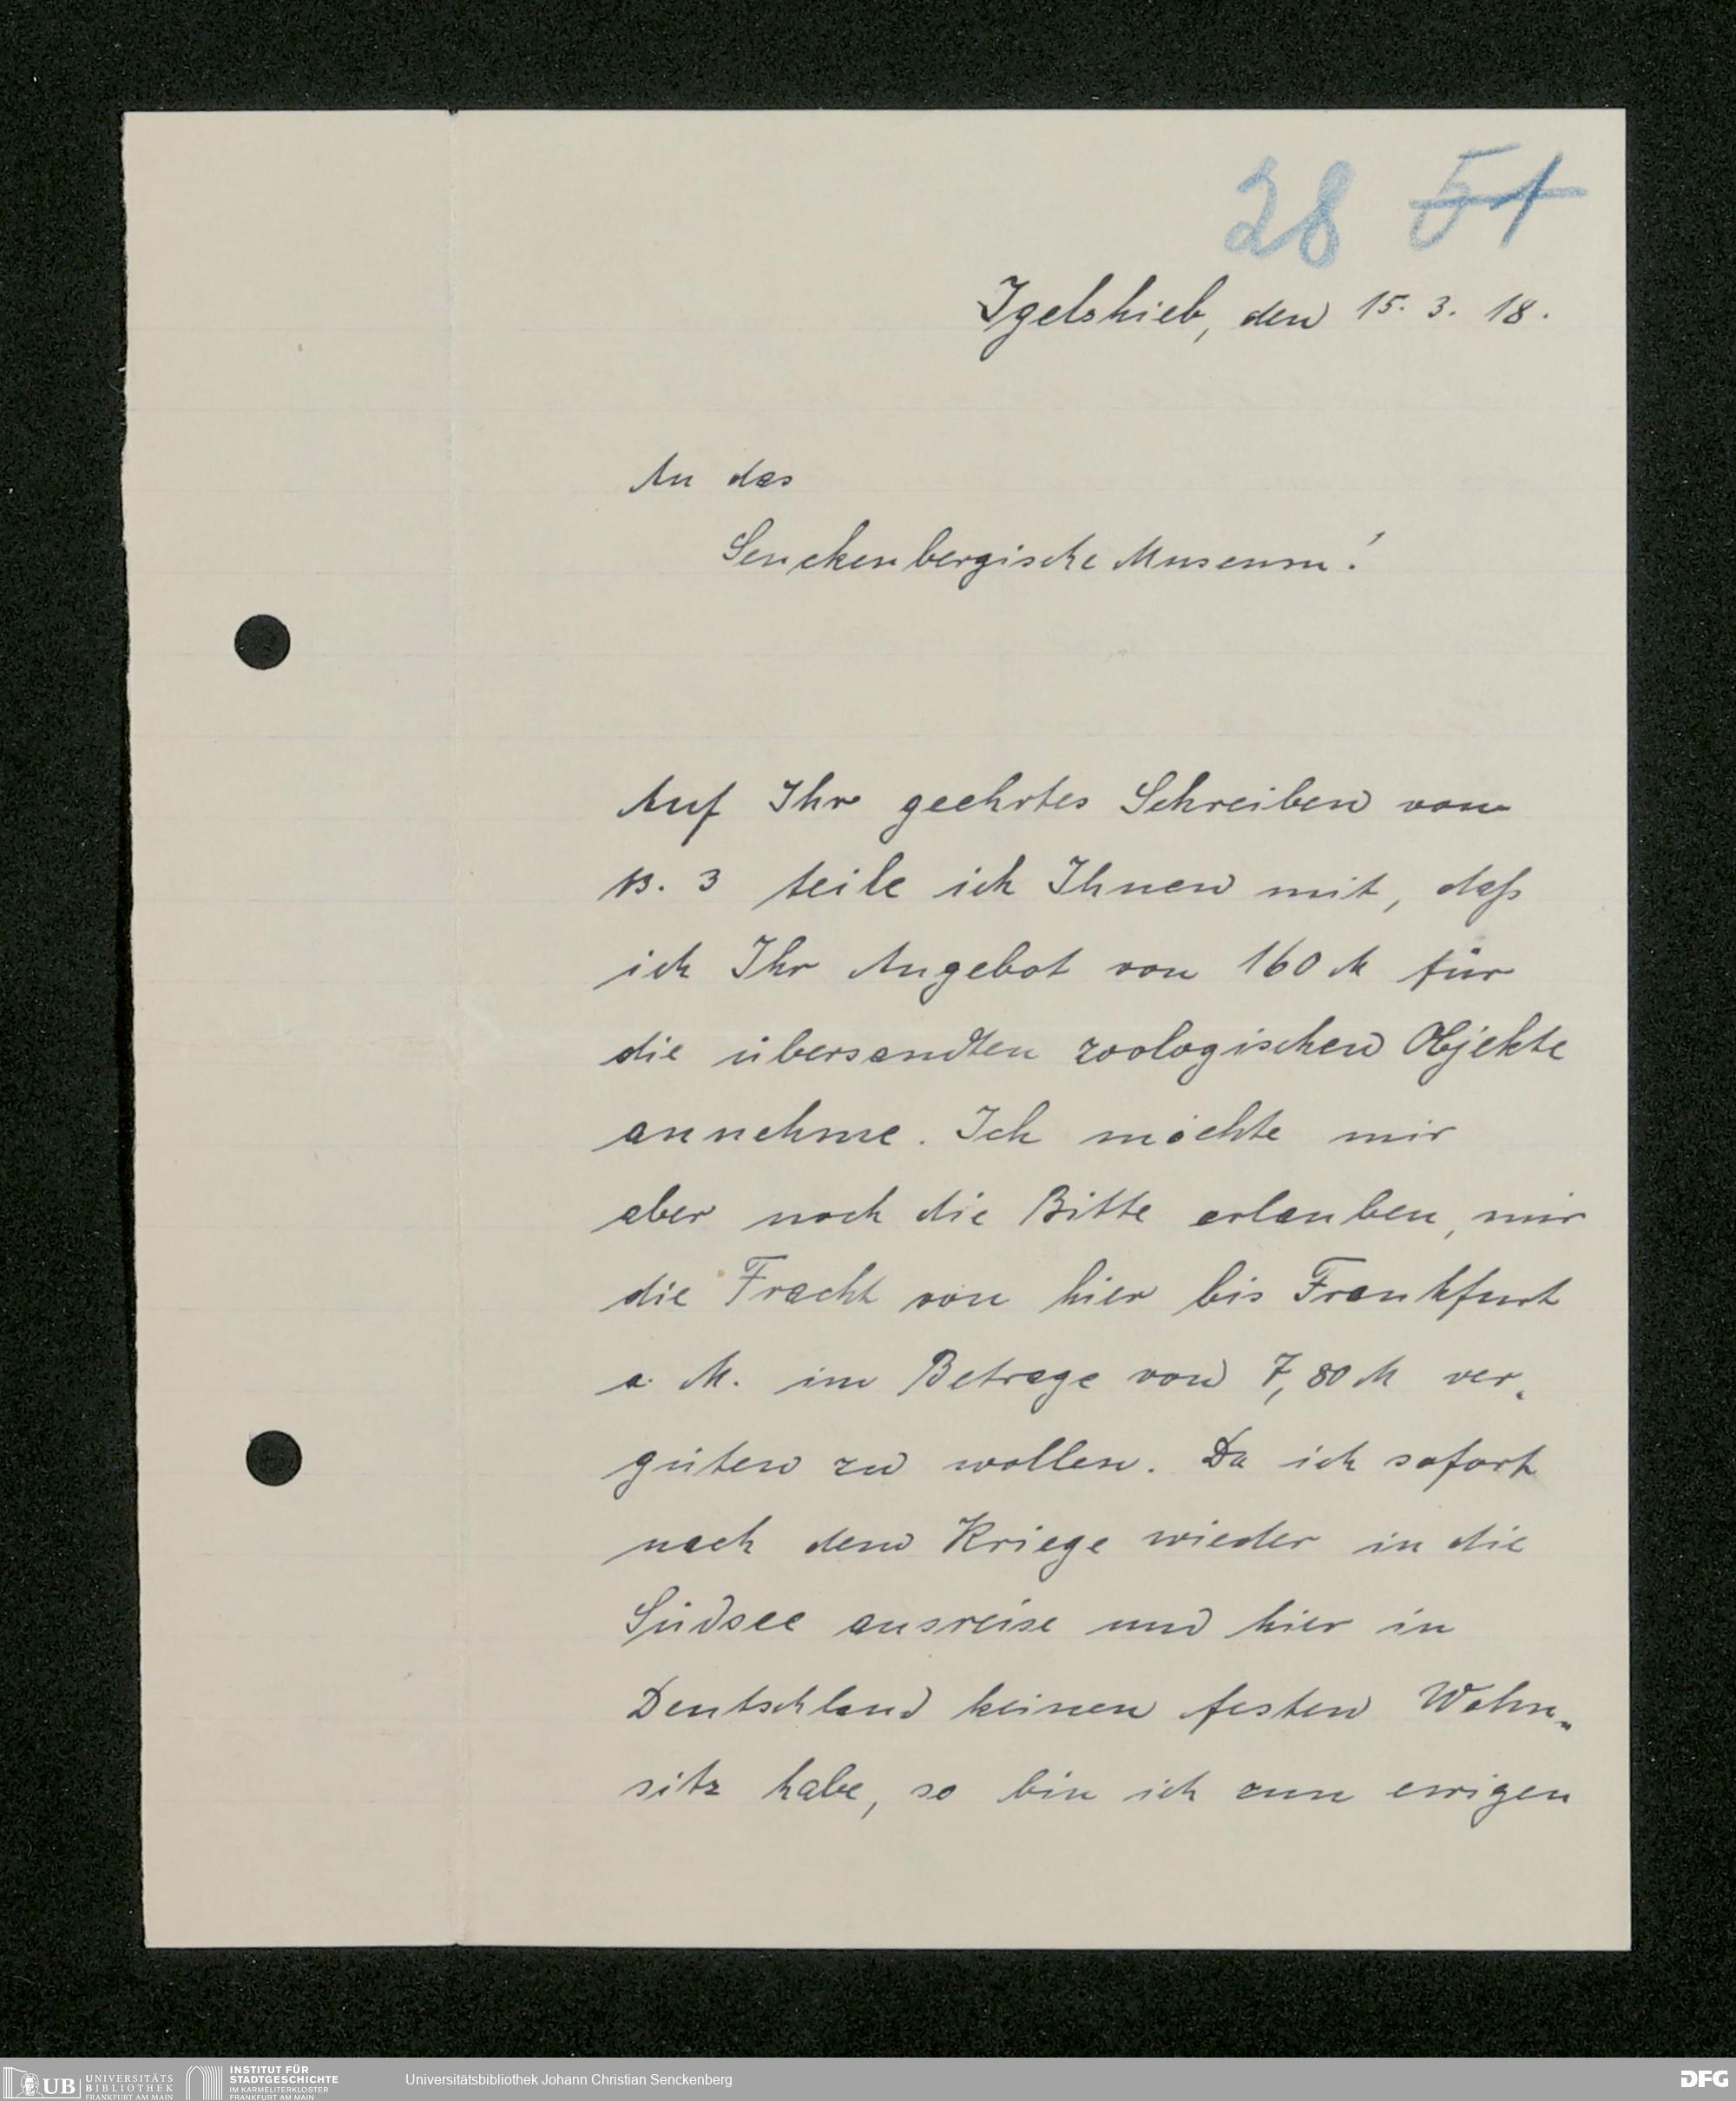 28 51
Igelshieb, den 15. 3. 18.
An das
Senckenbergische Museum!
Auf Ihr geehrtes Schreiben vom
13. 3 teile ich Ihnen mit, daß
ich Ihr Angebot von 160 M für
die übersandten zoologischen Objekte
annehme. Ich möchte mir
aber noch die Bitte erlauben, mir
die Fracht von hier bis Frankfurt
a. M. im Betrage von 7,80 M ver-
güten zu wollen. Da ich sofort
nach dem Kriege wieder in die
Südsee ausreise und hier in
Deutschland keinen festen Wohn-
sitz habe, so bin ich zum ewigen
UB UNIVERSITÄTS
BIBLIOTHEK
FRANKFURT AM MAIN
INSTITUT FÜR
STADTGESCHICHTE
IM KARMELITERKLOSTER
FRANKFURT AM MAIN
Universitätsbibliothek Johann Christian Senckenberg
DFG